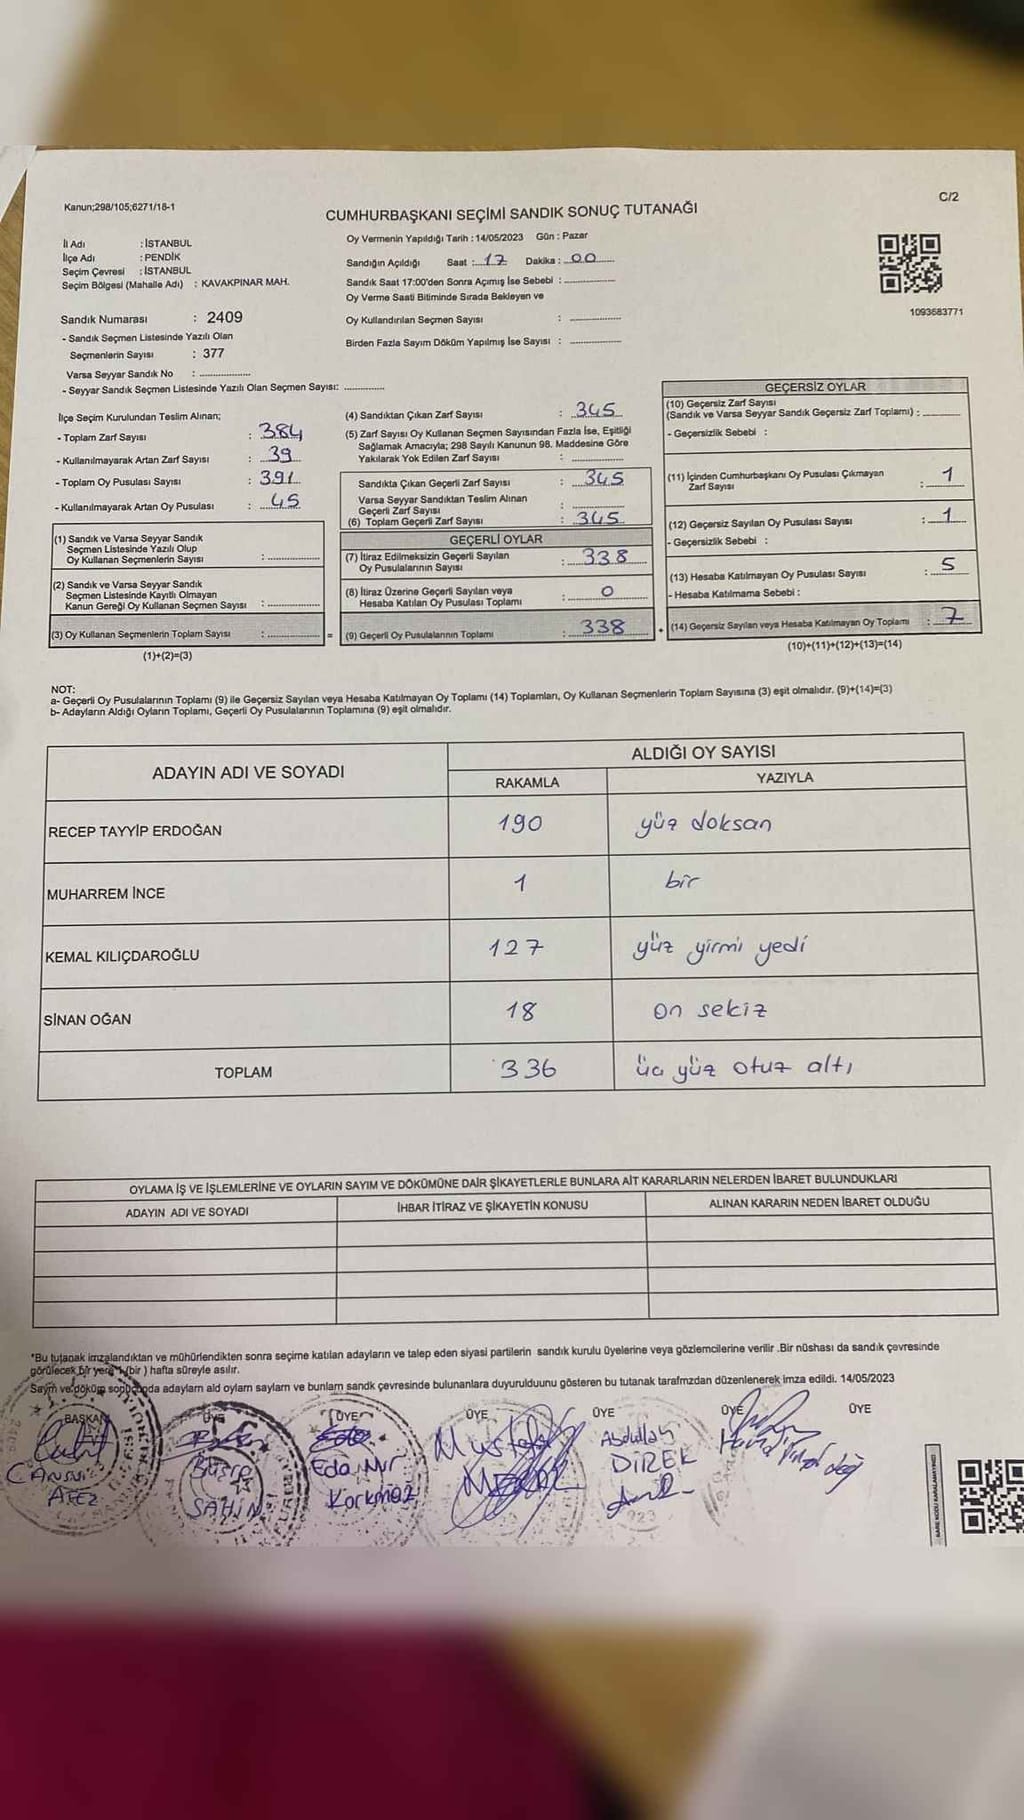 Kanun;298/105;6271/18-1
C/2
CUMHURBAŞKANI SEÇİMİ SANDIK SONUÇ TUTANAĞI
İl Adı : İSTANBUL
İlçe Adı : PENDİK
Seçim Çevresi : İSTANBUL
Seçim Bölgesi (Mahalle Adı) : KAVAKPINAR MAH.
Oy Vermenin Yapıldığı Tarih : 14/05/2023 Gün : Pazar
Sandığın Açıldığı Saat : 17 Dakika : 00
Sandık Saat 17:00'den Sonra Açımış İse Sebebi :
Oy Verme Saati Bitiminde Sırada Bekleyen ve
Oy Kullandırılan Seçmen Sayısı :
Birden Fazla Sayım Döküm Yapılmış İse Sayısı :
1093683771
Sandık Numarası : 2409
- Sandık Seçmen Listesinde Yazılı Olan
Seçmenlerin Sayısı : 377
Varsa Seyyar Sandık No :
- Seyyar Sandık Seçmen Listesinde Yazılı Olan Seçmen Sayısı:
İlçe Seçim Kurulundan Teslim Alınan;
- Toplam Zarf Sayısı : 384
- Kullanılmayarak Artan Zarf Sayısı : 39
- Toplam Oy Pusulası Sayısı : 391
- Kullanılmayarak Artan Oy Pusulası : 45
(1) Sandık ve Varsa Seyyar Sandık
Seçmen Listesinde Yazılı Olup
Oy Kullanan Seçmenlerin Sayısı :
(2) Sandık ve Varsa Seyyar Sandık
Seçmen Listesinde Kayıtlı Olmayan
Kanun Gereği Oy Kullanan Seçmen Sayısı :
(3) Oy Kullanan Seçmenlerin Toplam Sayısı : =
(1)+(2)=(3)
(4) Sandıktan Çıkan Zarf Sayısı : 345
(5) Zarf Sayısı Oy Kullanan Seçmen Sayısından Fazla İse, Eşitliği
Sağlamak Amacıyla; 298 Sayılı Kanunun 98. Maddesine Göre
Yakılarak Yok Edilen Zarf Sayısı :
Sandıkta Çıkan Geçerli Zarf Sayısı : 345
Varsa Seyyar Sandıktan Teslim Alınan
Geçerli Zarf Sayısı :
(6) Toplam Geçerli Zarf Sayısı : 345
GEÇERLİ OYLAR
(7) İtiraz Edilmeksizin Geçerli Sayılan
Oy Pusulalarının Sayısı : 338
(8) İtiraz Üzerine Geçerli Sayılan veya
Hesaba Katılan Oy Pusulası Toplamı : 0
(9) Geçerli Oy Pusulalarının Toplamı : 338 +
GEÇERSİZ OYLAR
(10) Geçersiz Zarf Sayısı
(Sandık ve Varsa Seyyar Sandık Geçersiz Zarf Toplamı) :
- Geçersizlik Sebebi :
(11) İçinden Cumhurbaşkanı Oy Pusulası Çıkmayan
Zarf Sayısı : 1
(12) Geçersiz Sayılan Oy Pusulası Sayısı : 1
- Geçersizlik Sebebi :
(13) Hesaba Katılmayan Oy Pusulası Sayısı : 5
- Hesaba Katılmama Sebebi :
(14) Geçersiz Sayılan veya Hesaba Katılmayan Oy Toplamı : 7
(10)+(11)+(12)+(13)=(14)
NOT:
a- Geçerli Oy Pusulalarının Toplamı (9) ile Geçersiz Sayılan veya Hesaba Katılmayan Oy Toplamı (14) Toplamları, Oy Kullanan Seçmenlerin Toplam Sayısına (3) eşit olmalıdır. (9)+(14)=(3)
b- Adayların Aldığı Oyların Toplamı, Geçerli Oy Pusulalarının Toplamına (9) eşit olmalıdır.
ADAYIN ADI VE SOYADI
ALDIĞI OY SAYISI
RAKAMLA YAZIYLA
RECEP TAYYİP ERDOĞAN 190 yüz doksan
MUHARREM İNCE 1 bir
KEMAL KILIÇDAROĞLU 127 yüz yirmi yedi
SİNAN OĞAN 18 on sekiz
TOPLAM 336 üç yüz otuz altı
OYLAMA İŞ VE İŞLEMLERİNE VE OYLARIN SAYIM VE DÖKÜMÜNE DAİR ŞİKAYETLERLE BUNLARA AİT KARARLARIN NELERDEN İBARET BULUNDUKLARI
ADAYIN ADI VE SOYADI İHBAR İTİRAZ VE ŞİKAYETİN KONUSU ALINAN KARARIN NEDEN İBARET OLDUĞU
*Bu tutanak imzalandıktan ve mühürlendikten sonra seçime katılan adayların ve talep eden siyasi partilerin sandık kurulu üyelerine veya gözlemcilerine verilir .Bir nüshası da sandık çevresinde
görülecek bir yere 1 (bir ) hafta süreyle asılır.
Sayım ve döküm sonucunda adayların ald oyların sayıları ve bunların sandk çevresinde bulunanlara duyurulduunu gösteren bu tutanak tarafmzdan düzenlenerek imza edildi. 14/05/2023
BAŞKAN ÜYE ÜYE ÜYE ÜYE ÜYE ÜYE
CANSU ATEZ
Büşra ŞAHİN
Eda Nur Korkmaz
Mustafa
Abdullah DİREK